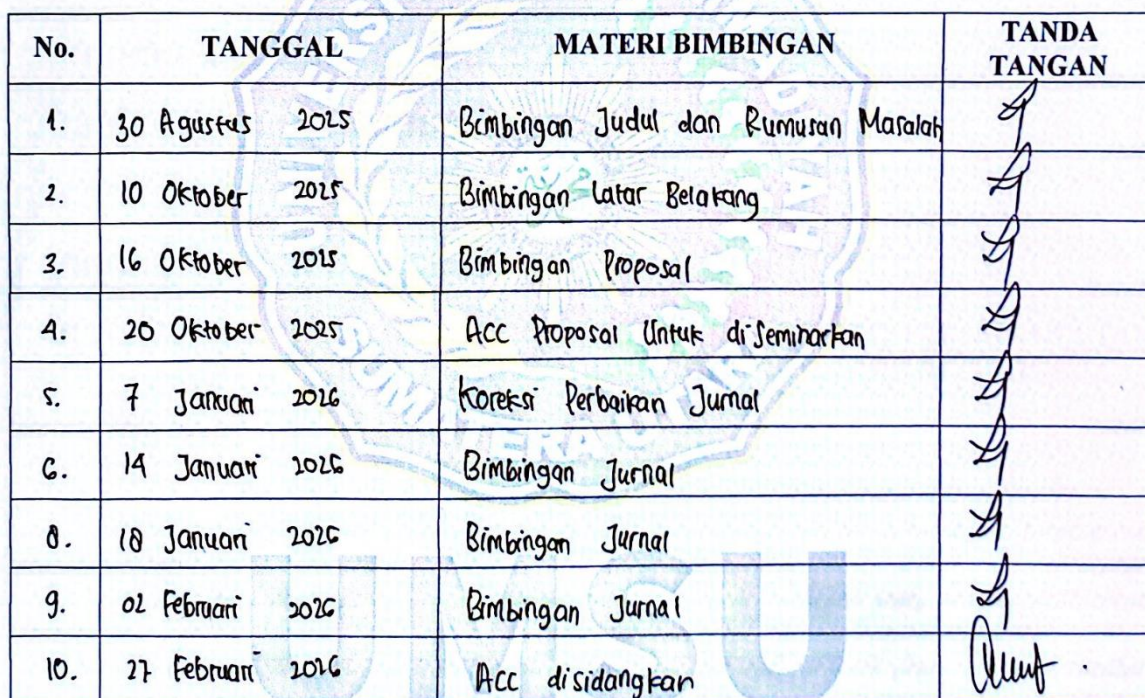 No. TANGGAL MATERI BIMBINGAN TANDA TANGAN
1. 30 Agustus 2025 Bimbingan Judul dan Rumusan Masalah
2. 10 Oktober 2025 Bimbingan Latar Belakang
3. 16 Oktober 2025 Bimbingan Proposal
4. 20 Oktober 2025 Acc Proposal Untuk diseminarkan
5. 7 Januari 2026 Koreksi Perbaikan Jurnal
6. 14 Januari 2026 Bimbingan Jurnal
8. 18 Januari 2026 Bimbingan Jurnal
9. 02 Februari 2026 Bimbingan Jurnal
10. 27 Februari 2026 Acc disidangkan
UMSU